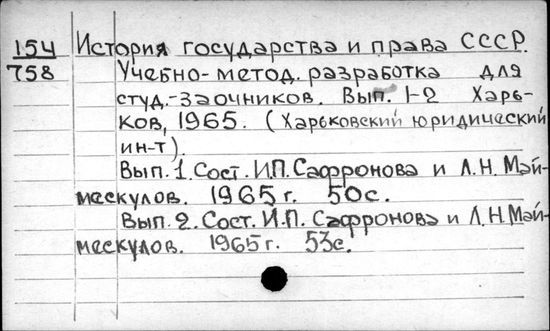 154 История государства и права СССР.
758 Учебно-метод. разработка для
студ.-заочников. Вып. 1-2 Харь-
ков, 1965. (Харьковский юридический
ин-т).
Вып. 1. Сост. И.П. Сафронова и Л.Н. Май-
мескулов. 1965 г. 50с.
Вып. 2. Сост. И.П. Сафронова и Л.Н. Май-
мескулов. 1965 г. 53с.